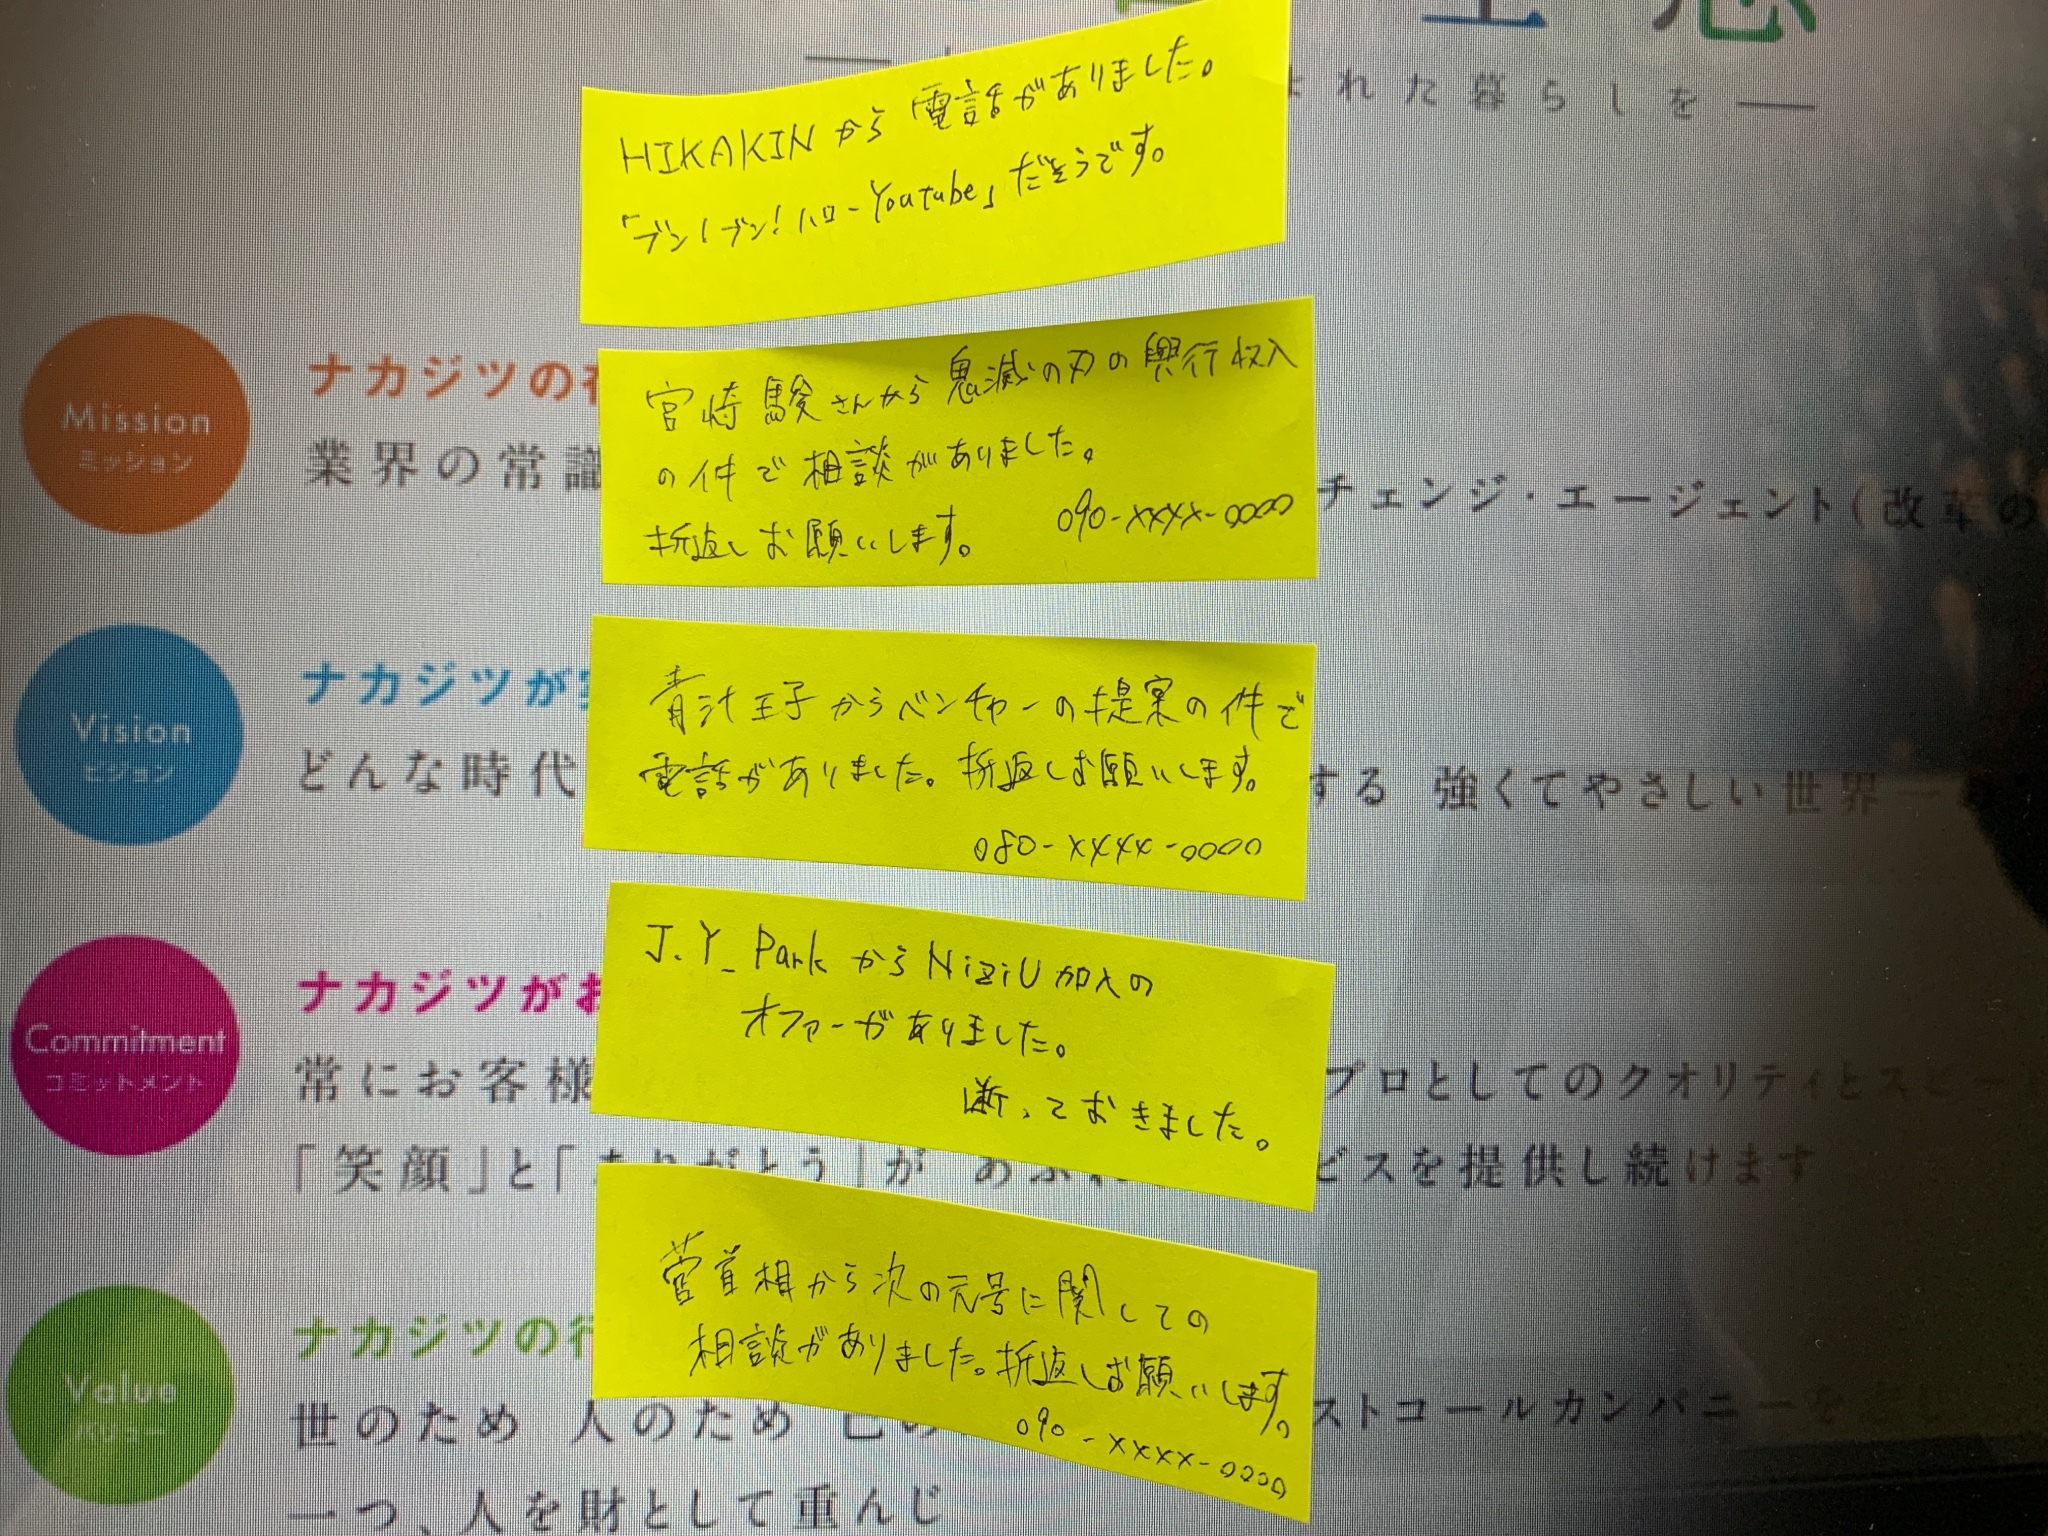 よれた暮らしを
HIKAKINから電話がありました。
「ブン!ブン!ハローYoutube」だそうです。
宮崎駿さんから鬼滅の刃の興行収入
の件で相談がありました。
折返しお願いします。 090-xxxx-0000
青汁王子からベンチャーの提案の件で
電話がありました。折返しお願いします。
080-xxxx-0000
J.Y. ParkからNiziU加入の
オファーがありました。
断っておきました。
菅首相から次の元号に関しての
相談がありました。折返しお願いします。
090-xxxx-0000
Mission
ミッション
ナカジツの
業界の常識 チェンジ・エージェント(改革の
Vision
ビジョン
ナカジツが
どんな時代 する 強くてやさしい世界
Commitment
コミットメント
ナカジツがお
常にお客様 プロとしてのクオリティとスピー
「笑顔」と「ありがとう」が あふれ ビスを提供し続けます
Value
バリュー
ナカジツの行
世のため 人のため 己の ストコールカンパニーを
一つ、人を財として重んじ